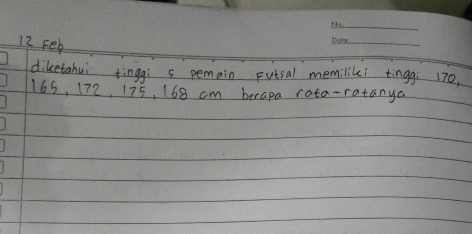 No.
Date:
12 Feb
diketahui tinggi 5 pemain Futsal memiliki tinggi 170,
165, 172, 175, 168 cm berapa rata-ratanya